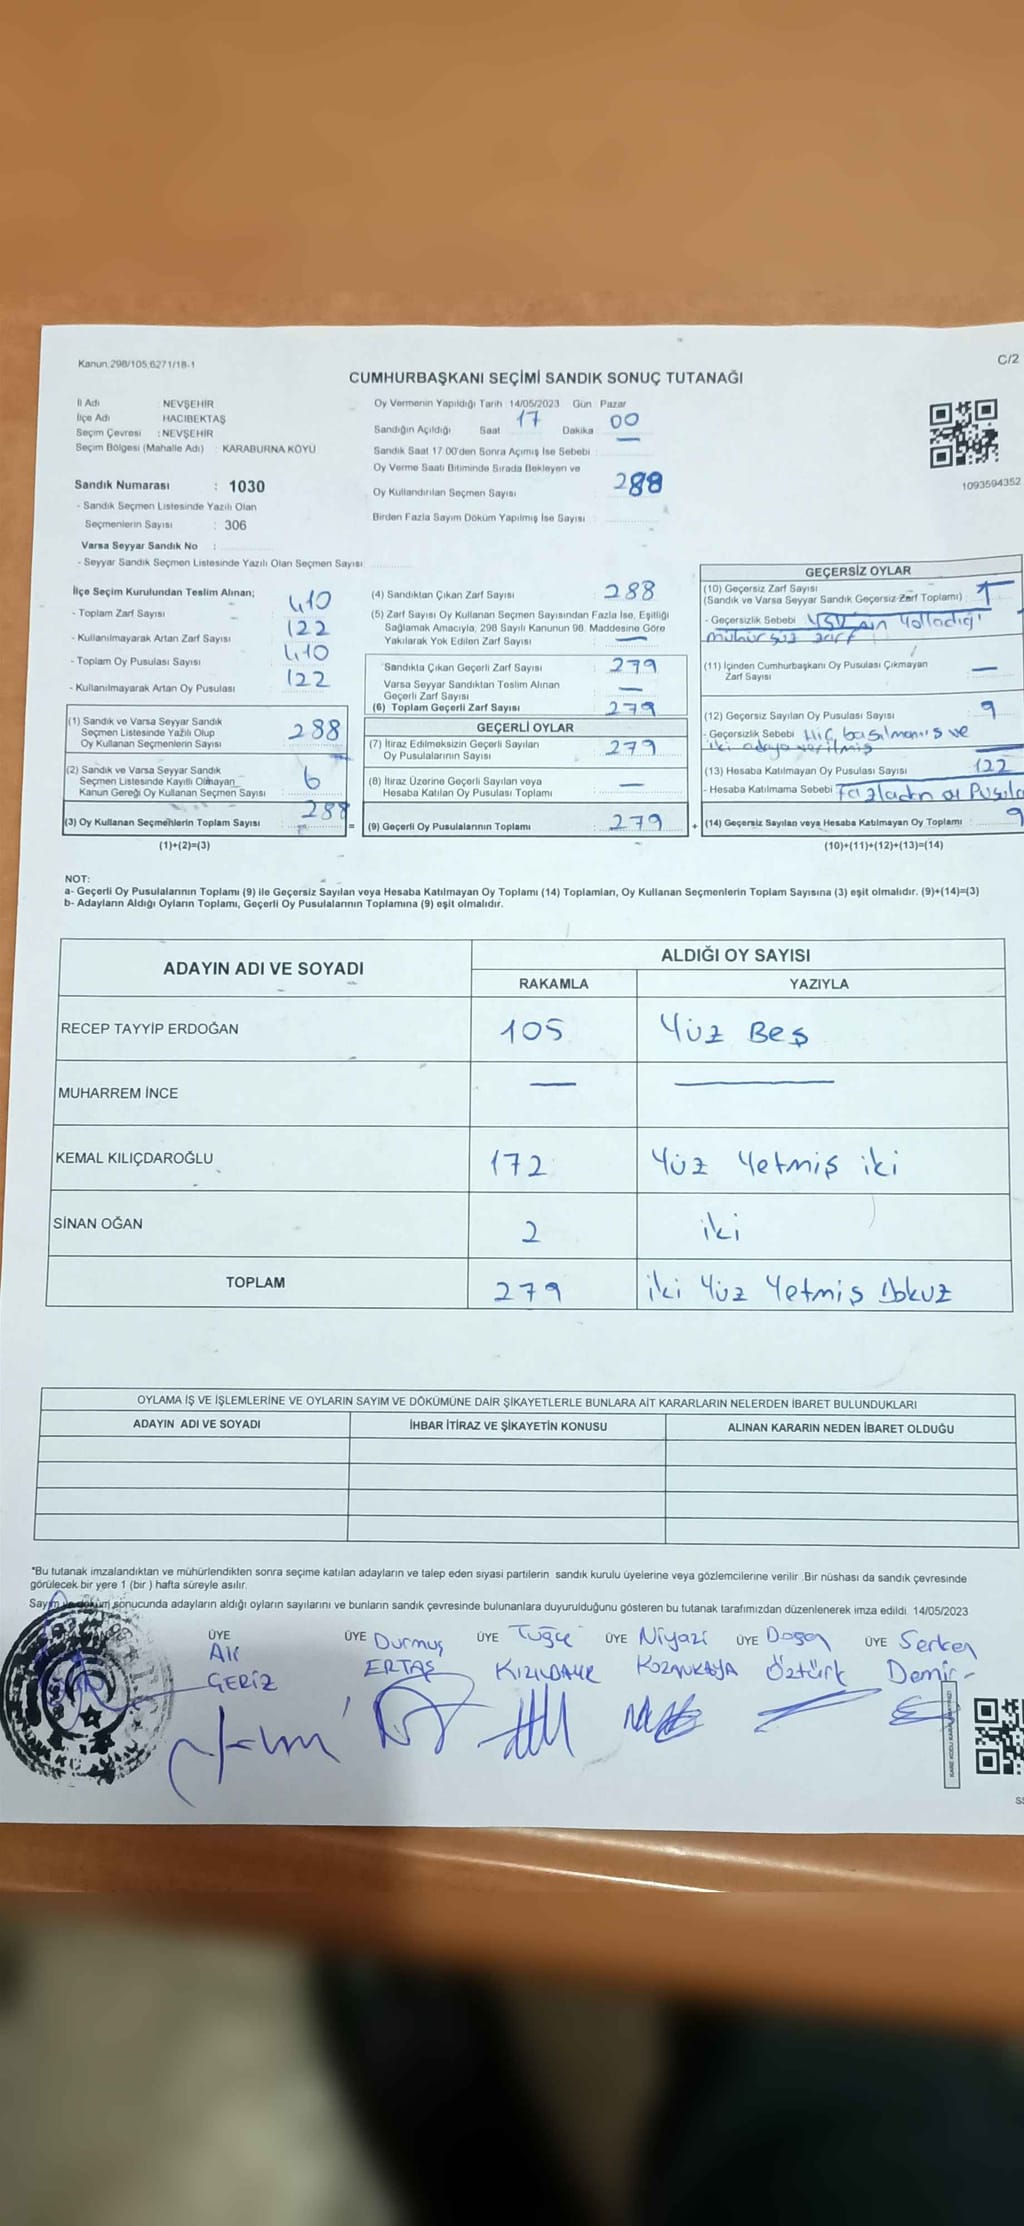 Kanun 298/105,6271/18-1
C/2
CUMHURBAŞKANI SEÇİMİ SANDIK SONUÇ TUTANAĞI
İl Adı : NEVŞEHİR
İlçe Adı : HACIBEKTAŞ
Seçim Çevresi : NEVŞEHİR
Seçim Bölgesi (Mahalle Adı) : KARABURNA KÖYÜ
Sandık Numarası : 1030
- Sandık Seçmen Listesinde Yazılı Olan
Seçmenlerin Sayısı : 306
Varsa Seyyar Sandık No :
- Seyyar Sandık Seçmen Listesinde Yazılı Olan Seçmen Sayısı
Oy Vermenin Yapıldığı Tarih : 14/05/2023 Gün : Pazar
Sandığın Açıldığı Saat 17 Dakika 00
Sandık Saat 17 00'den Sonra Açımış İse Sebebi :
Oy Verme Saati Bitiminde Sırada Bekleyen ve
Oy Kullandırılan Seçmen Sayısı 288
Birden Fazla Sayım Döküm Yapılmış İse Sayısı :
1093594352
İlçe Seçim Kurulundan Teslim Alınan;
- Toplam Zarf Sayısı 410
- Kullanılmayarak Artan Zarf Sayısı 122
- Toplam Oy Pusulası Sayısı 410
- Kullanılmayarak Artan Oy Pusulası 122
(1) Sandık ve Varsa Seyyar Sandık
Seçmen Listesinde Yazılı Olup
Oy Kullanan Seçmenlerin Sayısı 288
(2) Sandık ve Varsa Seyyar Sandık
Seçmen Listesinde Kayıtlı Olmayan
Kanun Gereği Oy Kullanan Seçmen Sayısı 6
(3) Oy Kullanan Seçmenlerin Toplam Sayısı 288 =
(1)+(2)=(3)
(4) Sandıktan Çıkan Zarf Sayısı 288
(5) Zarf Sayısı Oy Kullanan Seçmen Sayısından Fazla İse, Eşitliği
Sağlamak Amacıyla, 298 Sayılı Kanunun 98. Maddesine Göre
Yakılarak Yok Edilen Zarf Sayısı —
Sandıkta Çıkan Geçerli Zarf Sayısı 279
Varsa Seyyar Sandıktan Teslim Alınan
Geçerli Zarf Sayısı —
(6) Toplam Geçerli Zarf Sayısı 279
GEÇERLİ OYLAR
(7) İtiraz Edilmeksizin Geçerli Sayılan
Oy Pusulalarının Sayısı 279
(8) İtiraz Üzerine Geçerli Sayılan veya
Hesaba Katılan Oy Pusulası Toplamı —
(9) Geçerli Oy Pusulalarının Toplamı 279 +
GEÇERSİZ OYLAR
(10) Geçersiz Zarf Sayısı
(Sandık ve Varsa Seyyar Sandık Geçersiz Zarf Toplamı) :
- Geçersizlik Sebebi YSK'nın Yolladığı
mühürsüz zarf
(11) İçinden Cumhurbaşkanı Oy Pusulası Çıkmayan
Zarf Sayısı —
(12) Geçersiz Sayılan Oy Pusulası Sayısı 9
- Geçersizlik Sebebi Hiç basılmamış ve
iki adaya verilmiş
(13) Hesaba Katılmayan Oy Pusulası Sayısı 122
- Hesaba Katılmama Sebebi Fazladan oy Pusula
(14) Geçersiz Sayılan veya Hesaba Katılmayan Oy Toplamı : 9
(10)+(11)+(12)+(13)=(14)
NOT:
a- Geçerli Oy Pusulalarının Toplamı (9) ile Geçersiz Sayılan veya Hesaba Katılmayan Oy Toplamı (14) Toplamları, Oy Kullanan Seçmenlerin Toplam Sayısına (3) eşit olmalıdır. (9)+(14)=(3)
b- Adayların Aldığı Oyların Toplamı, Geçerli Oy Pusulalarının Toplamına (9) eşit olmalıdır.
ADAYIN ADI VE SOYADI ALDIĞI OY SAYISI
RAKAMLA YAZIYLA
RECEP TAYYİP ERDOĞAN 105 Yüz Beş
MUHARREM İNCE — —
KEMAL KILIÇDAROĞLU 172 Yüz Yetmiş iki
SİNAN OĞAN 2 iki
TOPLAM 279 iki Yüz Yetmiş Dokuz
OYLAMA İŞ VE İŞLEMLERİNE VE OYLARIN SAYIM VE DÖKÜMÜNE DAİR ŞİKAYETLERLE BUNLARA AİT KARARLARIN NELERDEN İBARET BULUNDUKLARI
ADAYIN ADI VE SOYADI İHBAR İTİRAZ VE ŞİKAYETİN KONUSU ALINAN KARARIN NEDEN İBARET OLDUĞU
*Bu tutanak imzalandıktan ve mühürlendikten sonra seçime katılan adayların ve talep eden siyasi partilerin sandık kurulu üyelerine veya gözlemcilerine verilir .Bir nüshası da sandık çevresinde
görülecek bir yere 1 (bir ) hafta süreyle asılır.
Sayım ve döküm sonucunda adayların aldığı oyların sayılarını ve bunların sandık çevresinde bulunanlara duyurulduğunu gösteren bu tutanak tarafımızdan düzenlenerek imza edildi. 14/05/2023
ÜYE ÜYE Durmuş ÜYE Tuğçe ÜYE Niyazi ÜYE Dogan ÜYE Serken
Ali ERTAŞ Öztürk Demir
GERİZ